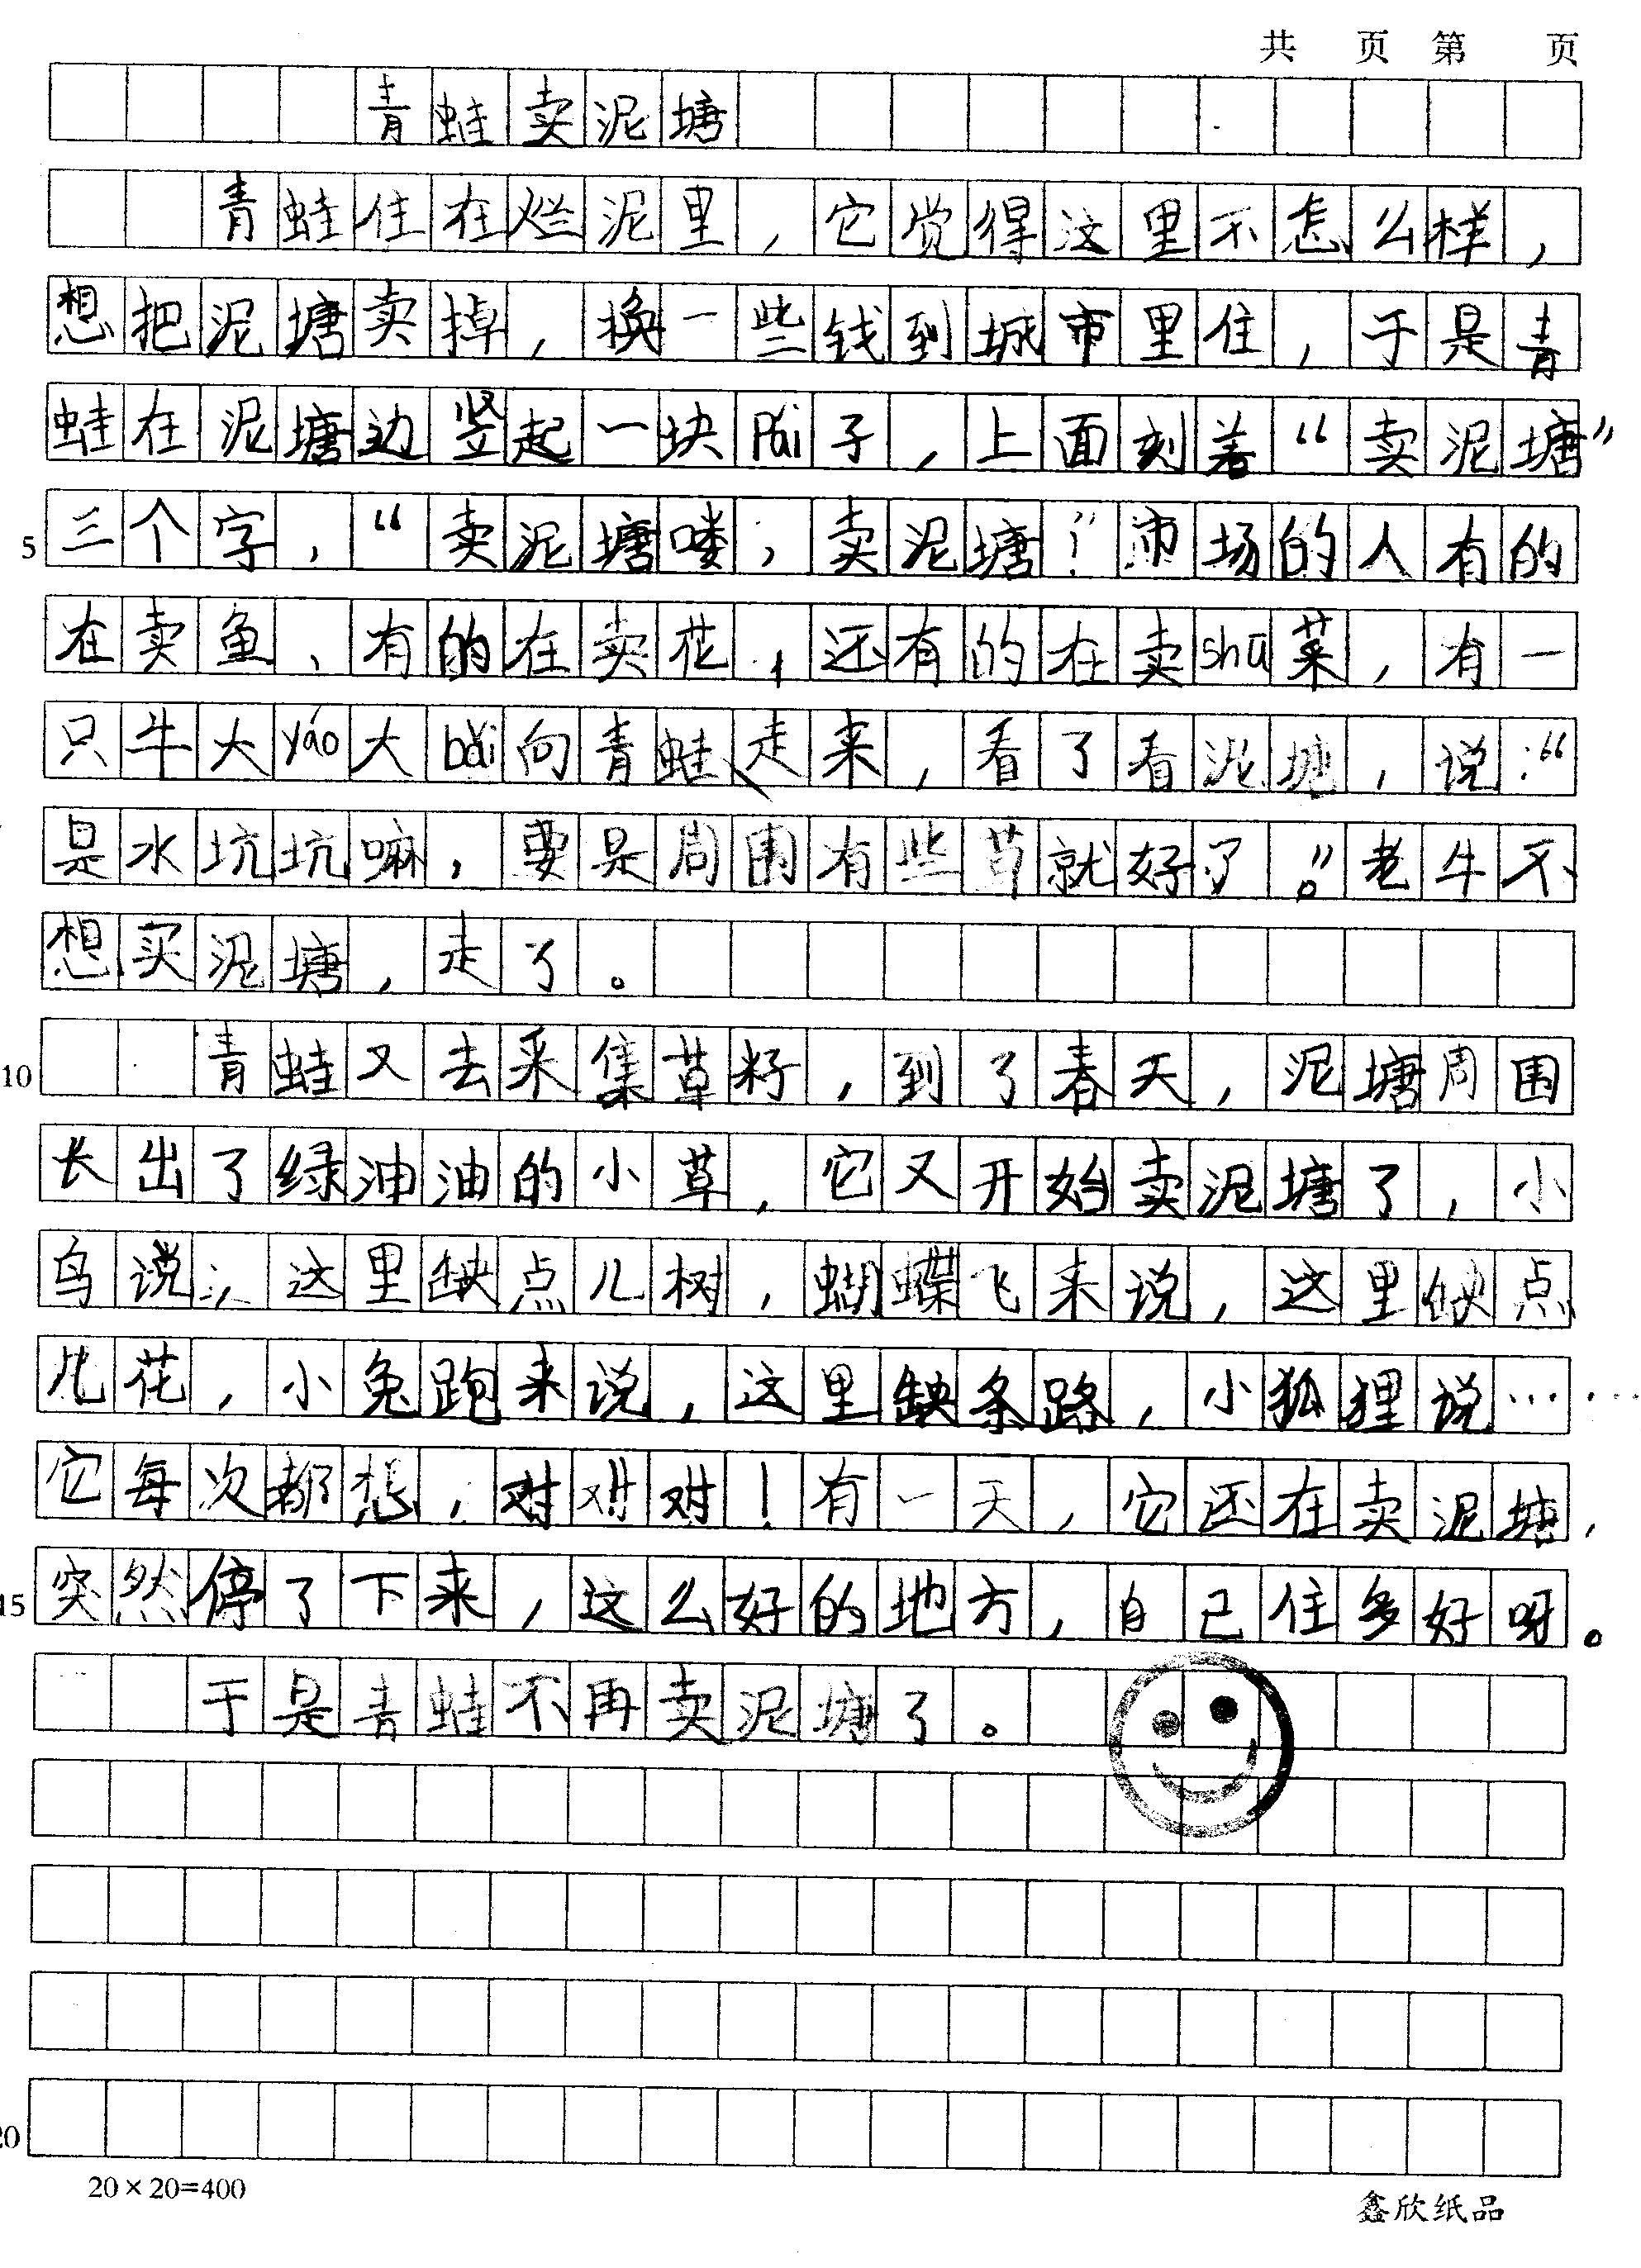 共 页 第 页
青蛙卖泥塘
青蛙住在烂泥里，它觉得这里不怎么样，
想把泥塘卖掉，换一些钱到城市里住，于是青
蛙在泥塘边竖起一块Pái子，上面刻着“卖泥塘”
5 三个字，“卖泥塘喽，卖泥塘！”市场的人有的
在卖鱼、有的在卖花，还有的在卖shū菜，有一
只牛大yáo大bǎi向青蛙走来，看了看泥塘，说：“
是水坑坑嘛，要是周围有些草就好了。”老牛不
想买泥塘，走了。
10 青蛙又去采集草籽，到了春天，泥塘周围
长出了绿油油的小草，它又开始卖泥塘了，小
鸟说：这里缺点儿树，蝴蝶飞来说，这里缺点
儿花，小兔跑来说，这里缺条路，小狐狸说……
它每次都想，对对对！有一天，它还在卖泥塘，
15 突然停了下来，这么好的地方，自己住多好呀。
于是青蛙不再卖泥塘了。
20
20×20=400
鑫欣纸品